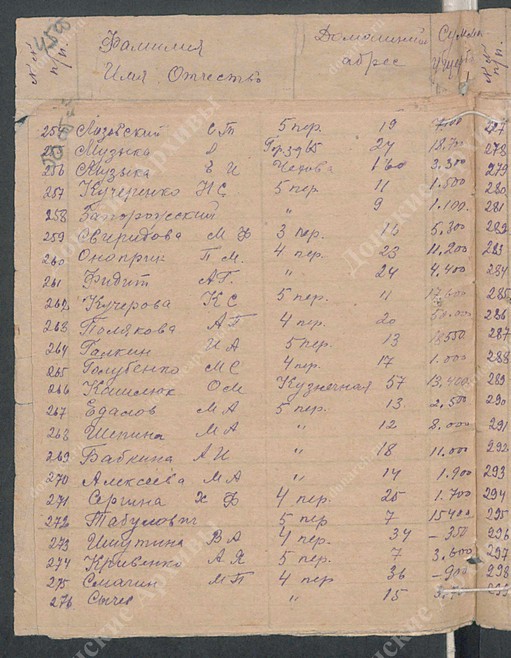 №№ п/п. Фамилия Имя Отчество Домашний адрес Сумма ущерба № п/п.
4500
254 Лозовский С Т 5 пер. 19 277
255 Музыка А 24 18.700 278
256 Музыка Е И Чехова 160 3.300 279
257 Кучеренко Н С 5 пер. 11 1.500 280
258 Запорожский " 9 1.100. 281
259 Свиридова М Ф 3 пер. 5.300 282
260 Оноприк П. М. 4 пер. 23 11.200 283
261 Фидит А Г. " 24 4.400 284
262 Кучерова К С 5 пер. 11 17.600 285
263 Полякова А Г 4 пер. 20 286
264 Галкин И А 5 пер. 13 18550 287
265 Голубенко М С 4 пер. 17 1.000 288
266 Кашлюк О М Кузнечная 57 13.400 289
267 Едасов М А 5 пер. 13 2.500 290
268 Шепина М А " 12 8.000 291
269 Бабкина А И " 18 11.000 292
270 Алексеева М А " 14 1.900 293
271 Сергина Х Ф 4 пер. 25 1.700 294
272 Табунович 5 пер 7 15400 295
273 Ишутина В А 4 пер. 34 – 350 296
274 Кривенко А Я 5 пер. 7 3.600 297
275 Смагин М П 4 пер 36 – 900 298
276 Сычев " 15
Донские Архивы